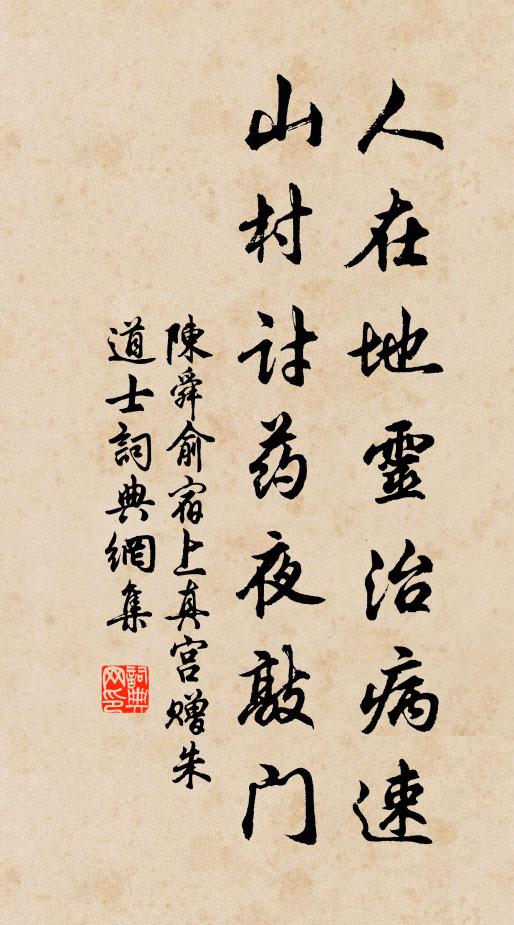 人在地靈治病速
山村讨药夜敲门
陳舜俞宿上真宫赠朱
道士詞典網集
詞典网印